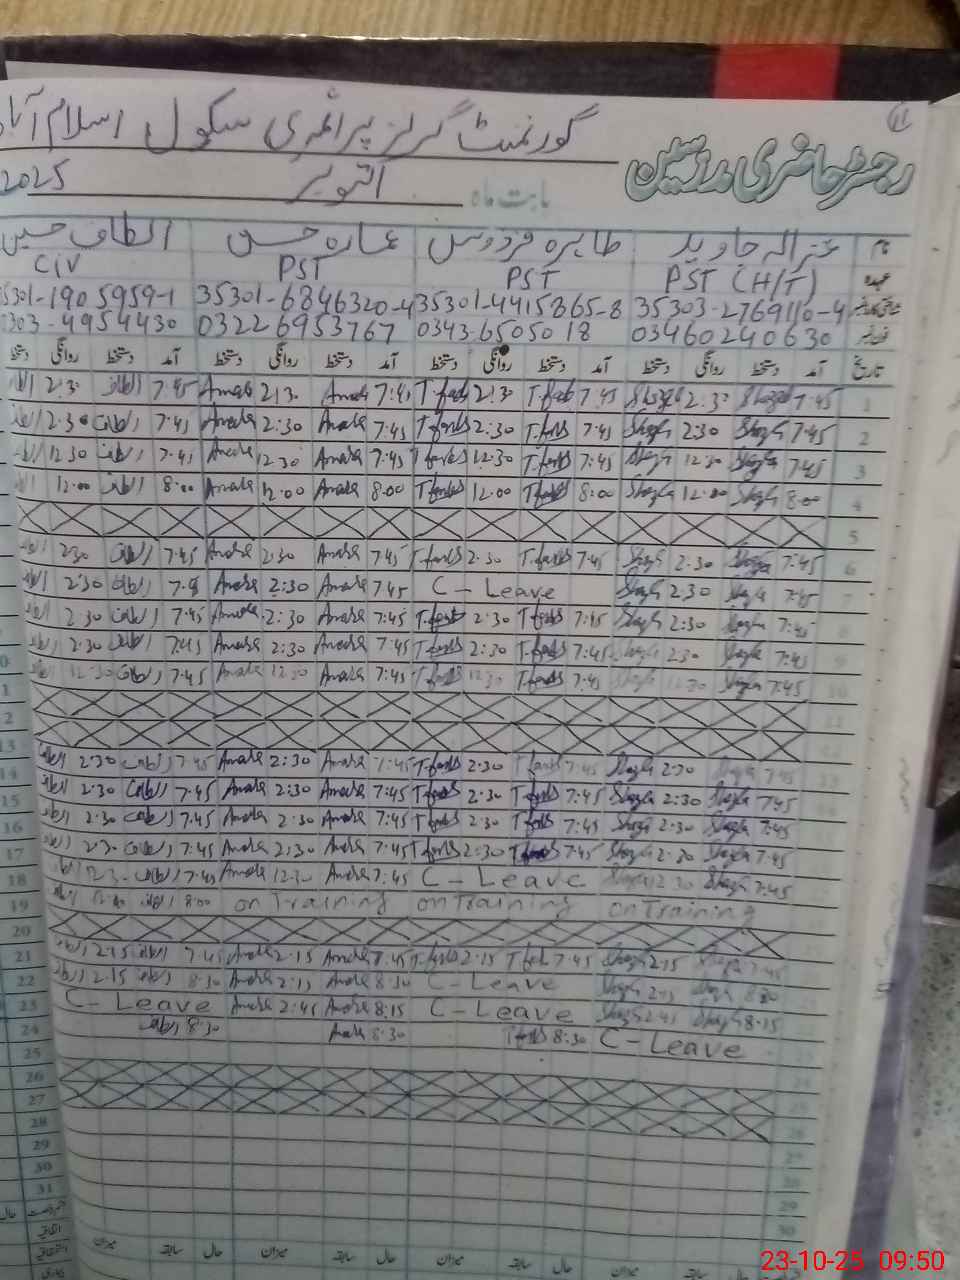 ۱۱
گورنمنٹ گرلز پرائمری سکول اسلام آباد
رجسٹر حاضری مدرسین
بابت ماہ اکتوبر 2025
نام شزالہ جاوید طاہرہ فردوس عمارہ حسن الطاف حسین
عہدہ PST (H/T) PST PST CIV
35303-2769110-4 35301-4415865-8 35301-6846320-4 35301-1905959-1
03460240630 0343-6505018 03226953767 0303-4954430
تاریخ آمد دستخط روانگی دستخط آمد دستخط روانگی دستخط آمد دستخط روانگی دستخط آمد دستخط روانگی دستخط
1 7:45 Shazla 2:30 Shazla 7:45 T.fards 2:30 T.fards 7:45 Amara 2:30 Amara 7:45 الطاف 2:30 الطاف
2 7:45 Shazla 2:30 Shazla 7:45 T.fards 2:30 T.fards 7:45 Amara 2:30 Amara 7:45 الطاف 2:30 الطاف
3 7:45 Shazla 12:30 Shazla 7:45 T.fards 12:30 T.fards 7:45 Amara 12:30 Amara 7:45 الطاف 12:30 الطاف
4 8:00 Shazla 12:00 Shazla 8:00 T.fards 12:00 T.fards 8:00 Amara 12:00 Amara 8:00 الطاف 12:00 الطاف
5
6 7:45 Shazla 2:30 Shazla 7:45 T.fards 2:30 T.fards 7:45 Amara 2:30 Amara 7:45 الطاف 2:30 الطاف
7 7:45 Shazla 2:30 Shazla C - Leave 7:45 Amara 2:30 Amara الطاف 2:30 الطاف
8 7:45 Shazla 2:30 Shazla 7:45 T.fards 2:30 T.fards 7:45 Amara 2:30 Amara 7:45 الطاف 2:30 الطاف
9 7:45 Shazla 2:30 Shazla 7:45 T.fards 2:30 T.fards 7:45 Amara 2:30 Amara 7:45 الطاف 2:30 الطاف
10 7:45 Shazla 12:30 Shazla 7:45 T.fards 12:30 T.fards 7:45 Amara 12:30 Amara 7:45 الطاف 12:30 الطاف
11
12
13 7:45 Shazla 2:30 Shazla 7:45 T.fards 2:30 T.fards 7:45 Amara 2:30 Amara 7:45 الطاف 2:30 الطاف
7:45 Shazla 2:30 Shazla 7:45 T.fards 2:30 T.fards 7:45 Amara 2:30 Amara 7:45 الطاف 2:30 الطاف
7:45 Shazla 2:30 Shazla 7:45 T.fards 2:30 T.fards 7:45 Amara 2:30 Amara 7:45 الطاف 2:30 الطاف
7:45 Shazla 2:30 Shazla 7:45 T.fards 2:30 T.fards 7:45 Amara 2:30 Amara 7:45 الطاف 2:30 الطاف
7:45 Shazla 12:30 Shazla C - Leave 7:45 Amara 12:30 Amara 7:45 الطاف 12:30 الطاف
on Training on Training on Training 8:00 الطاف الطاف
7:45 Shazla 2:15 Shazla 7:45 T.fards 2:15 T.fards 7:45 Amara 2:15 Amara 7:45 الطاف 2:15 الطاف
8:30 Shazla 2:15 Shazla C - Leave 8:30 Amara 2:15 Amara 8:30 الطاف 2:15 الطاف
8:15 Shazla 2:45 Shazla C - Leave 8:15 Amara 2:45 Amara C - Leave
C - Leave 8:30 T.fards 8:30 Amara 8:30 الطاف
27
28
29
30
13
14
15
16
17
18
19
20
21
22
23
24
25
26
27
28
29
30
31
میزان سابقہ حال میزان سابقہ حال میزان سابقہ حال
23-10-25 09:50